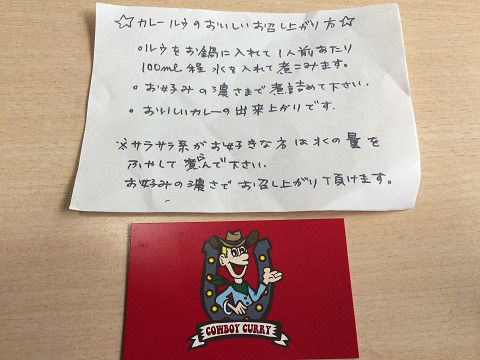 ☆カレールウのおいしいお召し上がり方☆
・ルウをお鍋に入れて1人前あたり
100ml程水を入れて煮こみます。
・お好みの濃さまで煮詰めて下さい。
・おいしいカレーの出来上がりです。
※サラサラ系がお好きな方は水の量を
ふやして煮こんで下さい。
お好みの濃さでお召し上がり頂けます。
COWBOY CURRY